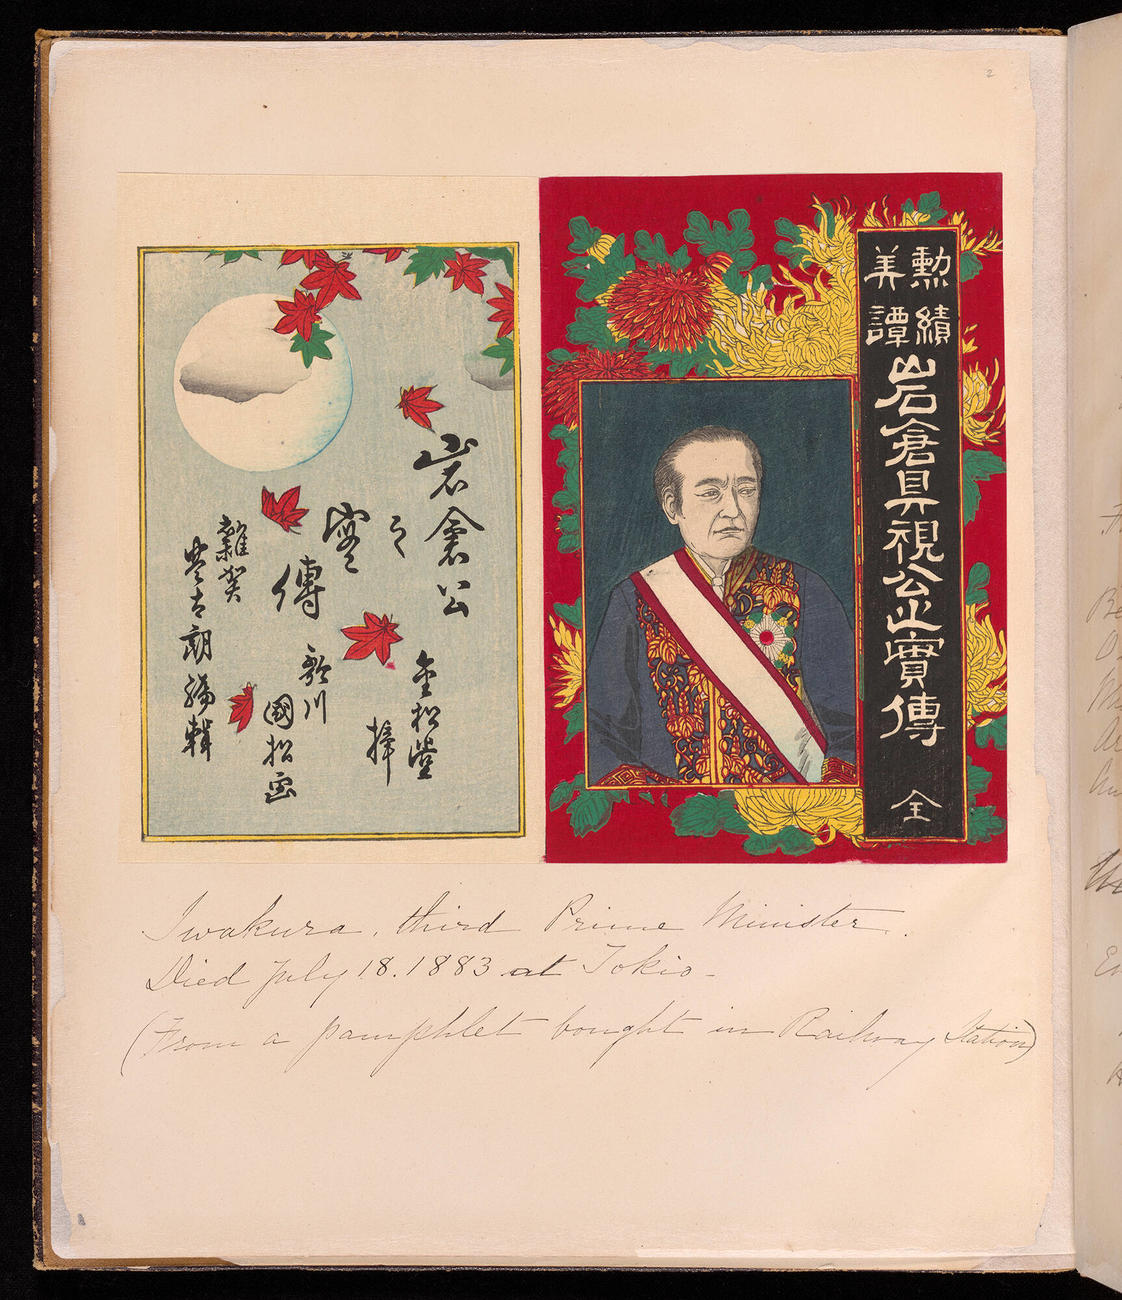 2
勲績
美譚
岩倉具視公之實傳
全
岩倉公
之
實
傳
金松堂
梓
歌川
國松画
雜賀
豊吉郎編輯
Iwakura, third Prime Minister.
Died July 18. 1883 at Tokio-
(From a pamphlet bought in Railway Station)